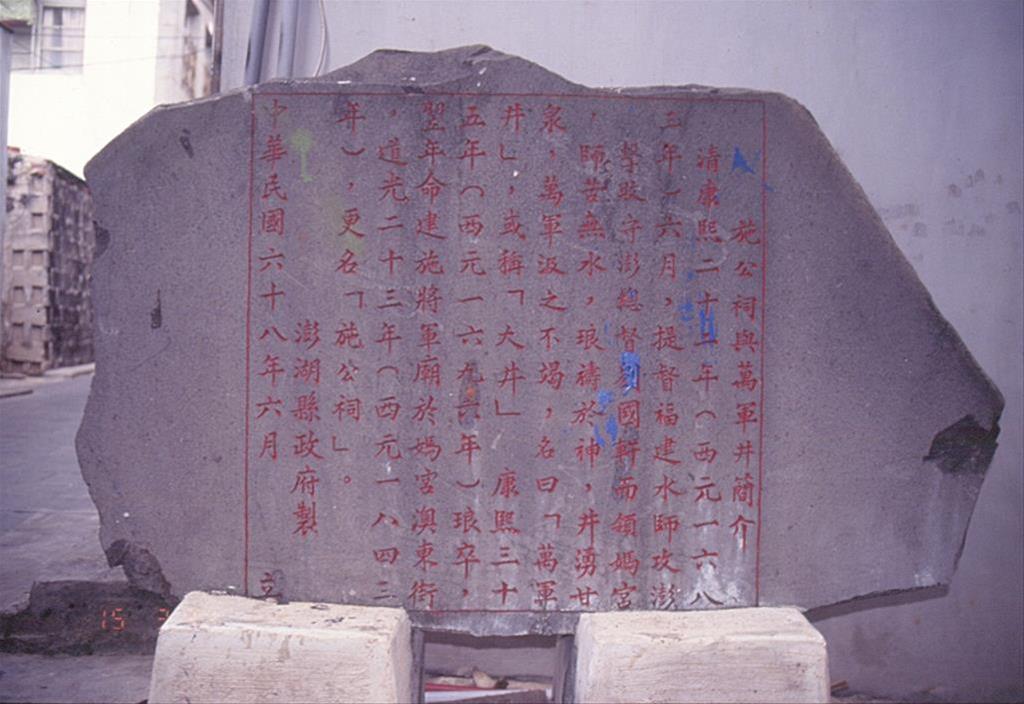 施公祠與萬軍井簡介
清康熙二十二年（西元一六八
三年）六月，提督福建水師攻澎
擊敗守澎總督劉國軒而領媽宮
，師苦無水，琅禱於神，井湧甘
泉，萬軍汲之不竭，名曰「萬軍
井」，或稱「大井」　康熙三十
五年（西元一六九六年）琅卒，
翌年命建施將軍廟於媽宮澳東街
，道光二十三年（西元一八四三
年），更名「施公祠」。
澎湖縣政府製
中華民國六十八年六月　立
15